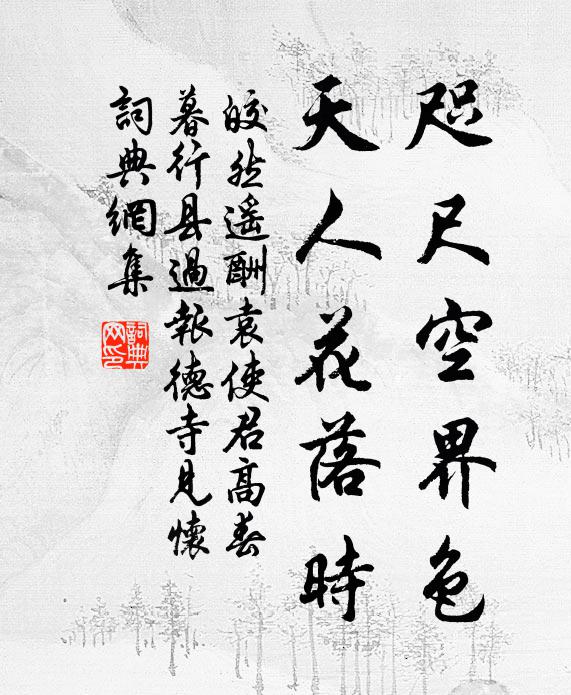 咫尺空界色
天人花落時
皎然遥酬袁使君高春
暮行县過報德寺見懷
詞典網集
詞典
网印